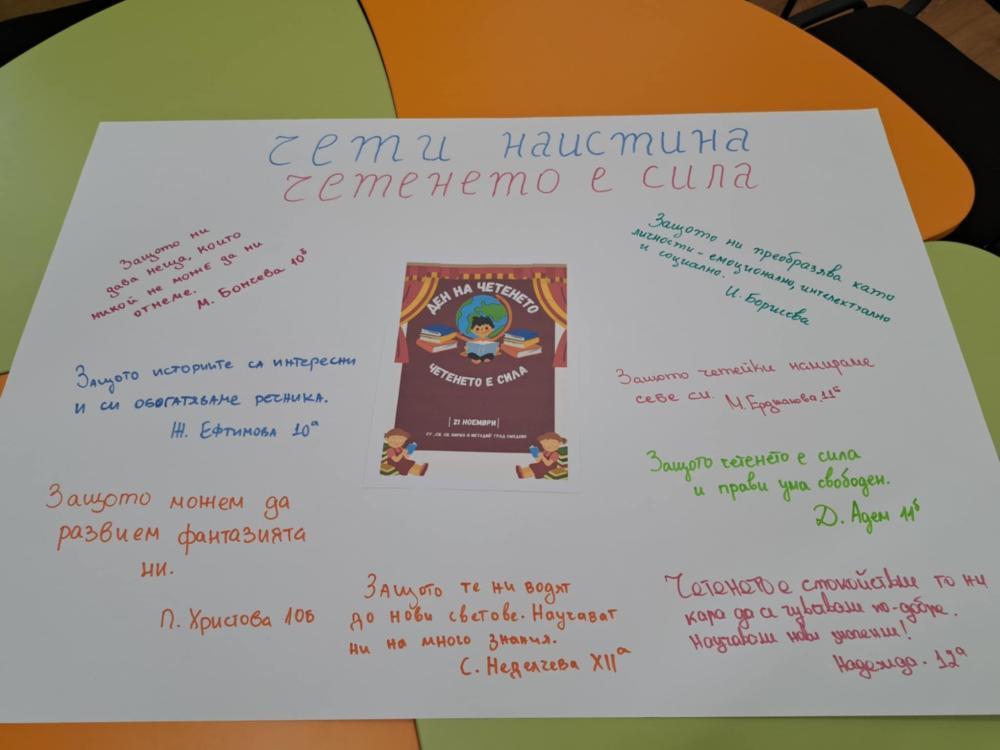 чети наистина
четенето е сила
Защото ни
дава неща, които
никой не може да ни
отнеме.
М. Бонсева 10б
Защото ни преобразява като
личности - емоционално, интелектуално
и социално.
И. Борисова
ДЕН НА ЧЕТЕНЕТО
ЧЕТЕНЕТО Е СИЛА
21 НОЕМВРИ
СУ „СВ. СВ. КИРИЛ И МЕТОДИЙ" ГРАД СМЯДОВО
Защото историите са интересни
и си обогатяваме речника.
Ж. Ефтимова 10а
Защото четейки намираме
себе си. М. 11б
Защото четенето е сила
и прави ума свободен.
Д. Адем 11б
Защото можем да
развием фантазията
ни.
П. Христова 10б
Защото те ни водят
до нови светове. Научават
ни на много знания.
С. Неделчева XIIа
Четенето е спокойствие то ни
кара да се чувствам по-добре.
Научавам нови!
Надежда. 12а